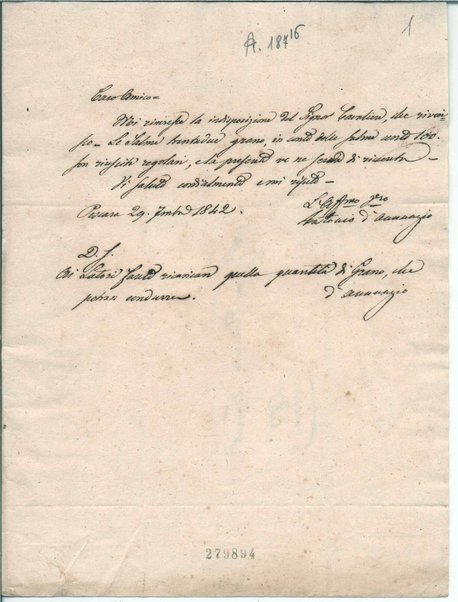 A. 187 16
1
Caro Amico =
Mi rincresce la indisposizione del Signor Carolin, che riveri-
sco = Le Salme trentadue grano, in conto delle salme cento 100.
son riuscite regolari, e la presente ve ne servirà di ricevuta =
Vi saluto cordialmente e mi ripeto =
Pescara 29. 7mbre 1842.
L'Affmo Vro
Antonio d'Annunzio
P. S.
Ai Latori farete ricaricare quella quantità di Grano, che
potran condurre =
d'Annunzio
279894